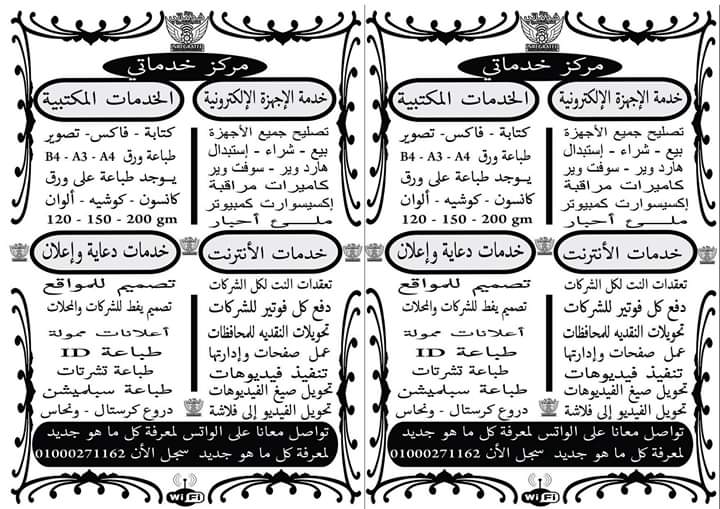 مركز خدماتي
خدمة الإجهزة الإلكترونية
تصليح جميع الأجهزة
بيع - شراء - إستبدال
هارد وير - سوفت وير
كاميرات مراقبة
إكسيسوارت كمبيوتر
ملئ أحبار
الخدمات المكتبية
كتابة - فاكس - تصوير
طباعة ورق B4 - A3 - A4
يوجد طباعة على ورق
كانسون - كوشيه - ألوان
120 - 150 - 200 gm
خدمات الأنترنت
تعقدات النت لكل الشركات
دفع كل فوتير للشركات
تحويلات النقديه للمحافظات
عمل صفحات وإدارتها
تنفيذ فيديوهات
تحويل صيغ الفيديوهات
تحويل الفيديو إلى فلاشة
خدمات دعاية وإعلان
تصميم للمواقع
تصميم يفط للشركات والمحلات
أعلانات ممولة
طباعة ID
طباعة تشرتات
طباعة سبلميشن
دروع كرستال - ونحاس
تواصل معانا على الواتس لمعرفة كل ما هو جديد
لمعرفة كل ما هو جديد سجل الأن 01000271162
WiFi
مركز خدماتي
خدمة الإجهزة الإلكترونية
تصليح جميع الأجهزة
بيع - شراء - إستبدال
هارد وير - سوفت وير
كاميرات مراقبة
إكسيسوارت كمبيوتر
ملئ أحبار
الخدمات المكتبية
كتابة - فاكس - تصوير
طباعة ورق B4 - A3 - A4
يوجد طباعة على ورق
كانسون - كوشيه - ألوان
120 - 150 - 200 gm
خدمات الأنترنت
تعقدات النت لكل الشركات
دفع كل فوتير للشركات
تحويلات النقديه للمحافظات
عمل صفحات وإدارتها
تنفيذ فيديوهات
تحويل صيغ الفيديوهات
تحويل الفيديو إلى فلاشة
خدمات دعاية وإعلان
تصميم للمواقع
تصميم يفط للشركات والمحلات
أعلانات ممولة
طباعة ID
طباعة تشرتات
طباعة سبلميشن
دروع كرستال - ونحاس
تواصل معانا على الواتس لمعرفة كل ما هو جديد
لمعرفة كل ما هو جديد سجل الأن 01000271162
WiFi